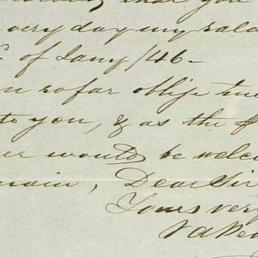 that you
every day my sala
of Jany /46-
so far oblige me
to you, & as the
would be welco
main, Dear Sir
Yours very